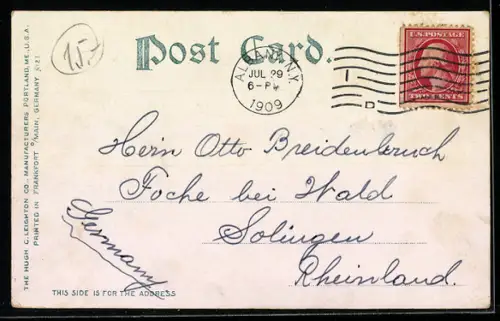 15.-
Post Card.
ALBANY, N.Y.
JUL 29
6-PM
1909
U.S. POSTAGE
TWO CENTS
Herrn Otto Breidenbruch
Foche bei Wald
Solingen
Rheinland.
Germany
THIS SIDE IS FOR THE ADDRESS
THE HUGH C. LEIGHTON CO., MANUFACTURERS PORTLAND, ME., U.S.A.
PRINTED IN FRANKFORT O/MAIN, GERMANY